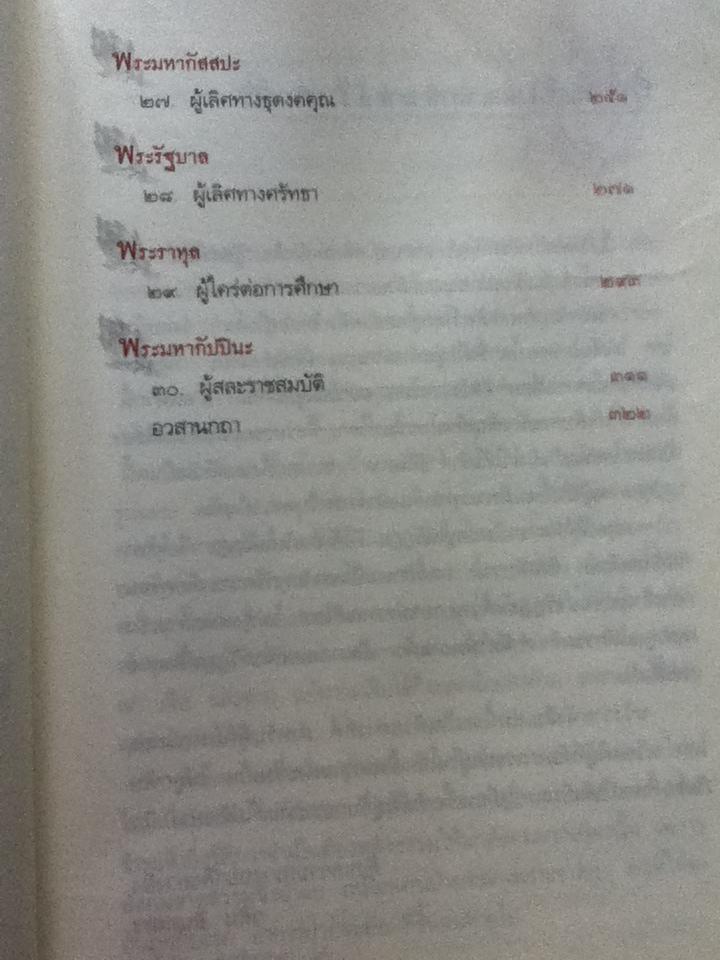 พระมหากัสสปะ
๒๗. ผู้เลิศทางธุดงคคุณ ๒๕๑
พระรัฐบาล
๒๘. ผู้เลิศทางศรัทธา ๒๗๑
พระราหุล
๒๙. ผู้ใคร่ต่อการศึกษา ๒๙๓
พระมหากัปปินะ
๓๐. ผู้สละราชสมบัติ ๓๑๑
อวสานกถา ๓๒๒